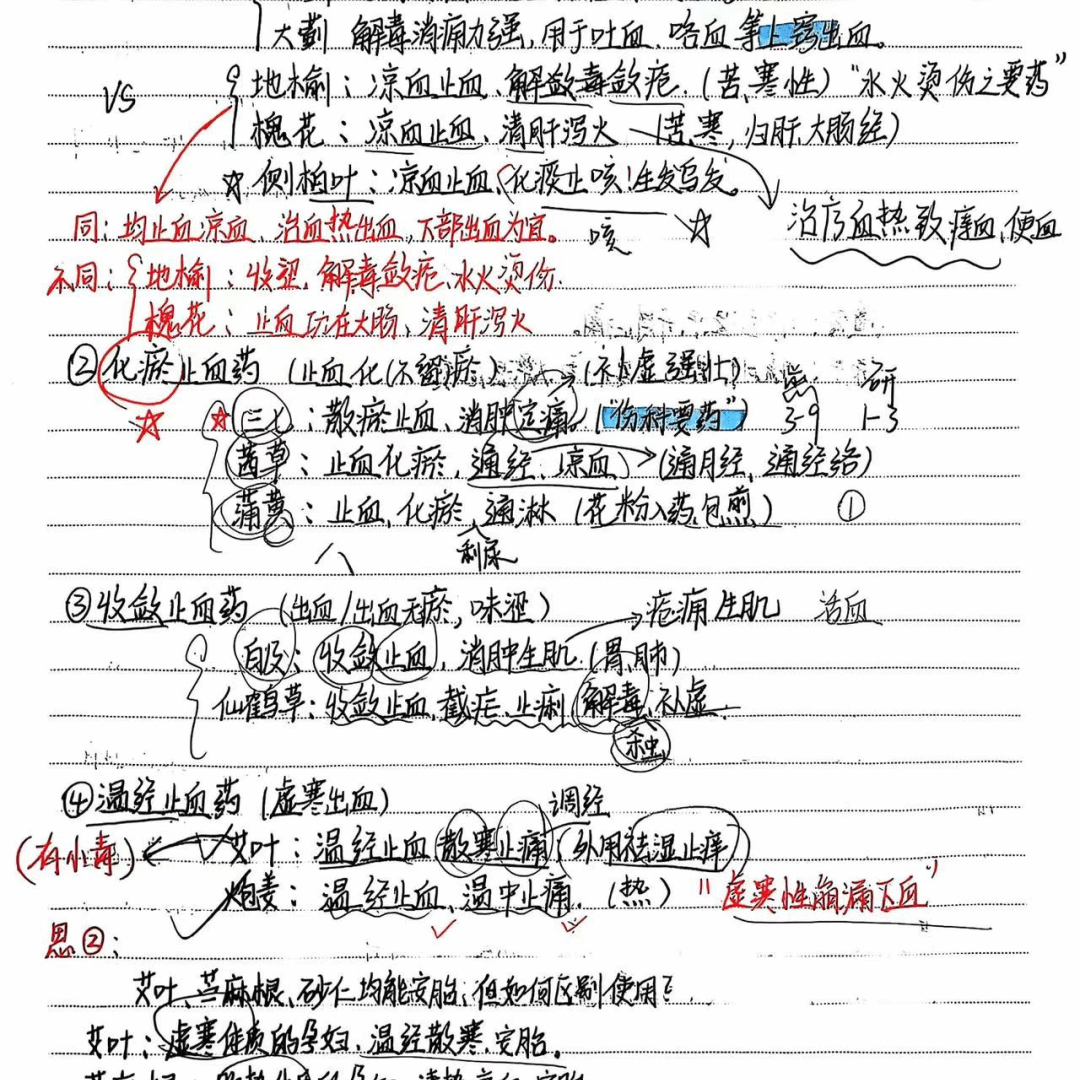 大蓟 解毒消痈力强,用于吐血、咯血等上窍出血。
VS
地榆:凉血止血、解敛毒敛疮.(苦、寒性)“水火烫伤之要药”
槐花:凉血止血、清肝泻火(苦、寒,归肝、大肠经)
☆侧柏叶:凉血止血、化痰止咳!生发乌发。
咳 ☆
治疗血热致痔血、便血
同:均止血凉血、治血热出血,下部出血为宜。
不同:地榆:收涩.解毒敛疮.水火烫伤.
槐花:止血功在大肠、清肝泻火
②化瘀止血药(止血化(不留)瘀)(补虚强壮)
☆ ☆三七:散瘀止血、消肿定痛。(“伤科要药”) 3-9 研1-3
茜草:止血化瘀,通经、凉血(通月经,通经络)
蒲黄:止血,化瘀,通淋(花粉入药,包煎) ①
利尿
③收敛止血药(出血/出血无瘀,味涩) 疮痈生肌 活血
白及:收敛止血,消肿生肌(胃.肺)
仙鹤草:收敛止血.截疟.止痢 解毒、补虚.
杀虫
④温经止血药(虚寒出血) 调经
(有小毒) 艾叶:温经止血 散寒止痛(外用祛湿止痒)
炮姜:温经止血、温中止痛.(热)“虚寒性崩漏下血”
思②:
艾叶、苎麻根、砂仁均能安胎,但如何区别使用?
艾叶:虚寒体质的孕妇.温经散寒.安胎。